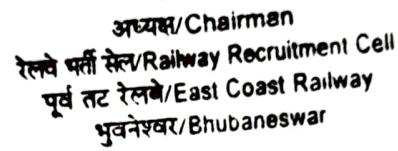 अध्यक्ष/Chairman
रेलवे भर्ती सेल/Railway Recruitment Cell
पूर्व तट रेलवे/East Coast Railway
भुवनेश्वर/Bhubaneswar